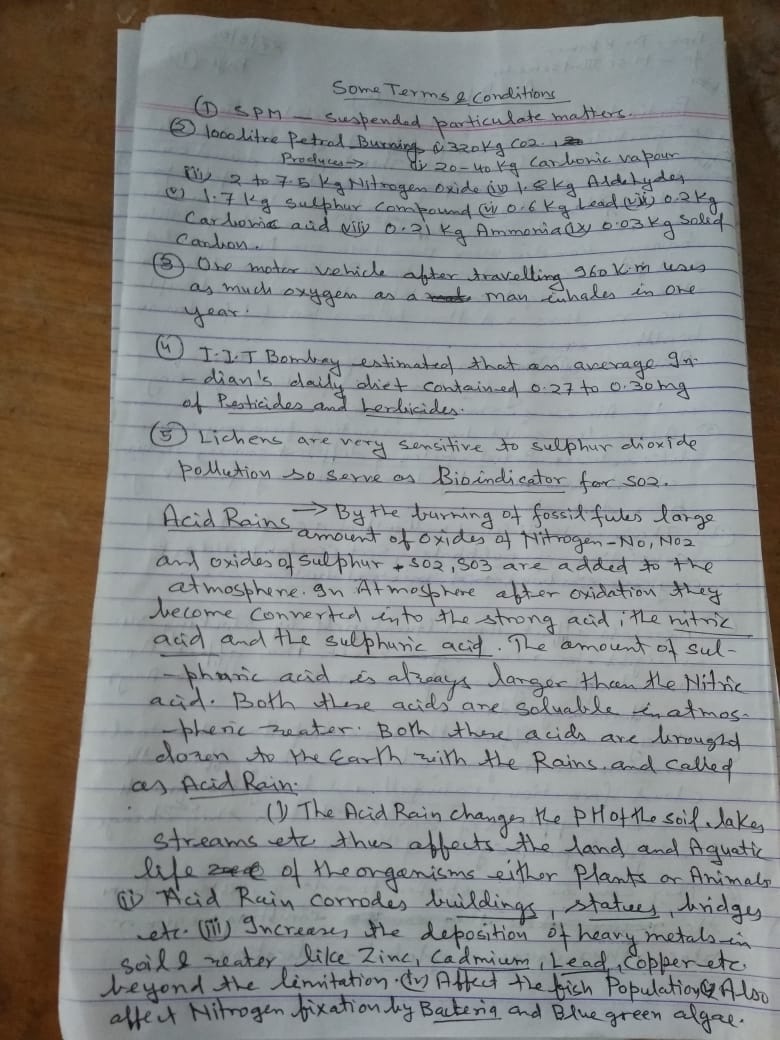 Some Terms & Conditions
① SPM — Suspended particulate matters.
② 1000 litre Petrol Burning (i) 320 kg CO2.
Produces → (ii) 20-40 kg Carbonic vapour
(iii) 2 to 7.5 kg Nitrogen oxide (iv) 1.8 kg Aldehydes
(v) 1.7 kg Sulphur Compound (vi) 0.6 kg Lead (vii) 0.2 kg
Carbonic acid (viii) 0.21 kg Ammonia (ix) 0.03 kg Solid
Carbon.
③ One motor vehicle after travelling 960 K.m uses
as much oxygen as a man inhales in one
year.
④ I.I.T Bombay estimated that an average In-
-dian's daily diet contained 0.27 to 0.30 mg
of Pesticides and herbicides.
⑤ Lichens are very sensitive to sulphur dioxide
pollution so serve as Bioindicator for SO2.
Acid Rains → By the burning of fossil fules large
amount of oxides of Nitrogen - NO, NO2
and oxides of Sulphur + SO2, SO3 are added to the
atmosphere. In Atmosphere after oxidation they
become converted into the strong acid; the nitric
acid and the sulphuric acid. The amount of sul-
-phuric acid is always larger than the Nitric
acid. Both these acids are soluable in atmos-
-pheric water. Both these acids are brought
down to the Earth with the Rains. and called
as Acid Rain.
(i) The Acid Rain changes the PH of the soil, lakes
streams etc thus affects the land and Aquatic
life of the organisms either Plants or Animals
(ii) Acid Rain corrodes buildings, statues, bridges
etc. (iii) Increases, the deposition of heavy metals in
soil & water like Zinc, Cadmium, Lead, Copper etc.
beyond the limitation. (iv) Affect the fish Population & Also
affect Nitrogen fixation by Bacteria and Blue green algae.